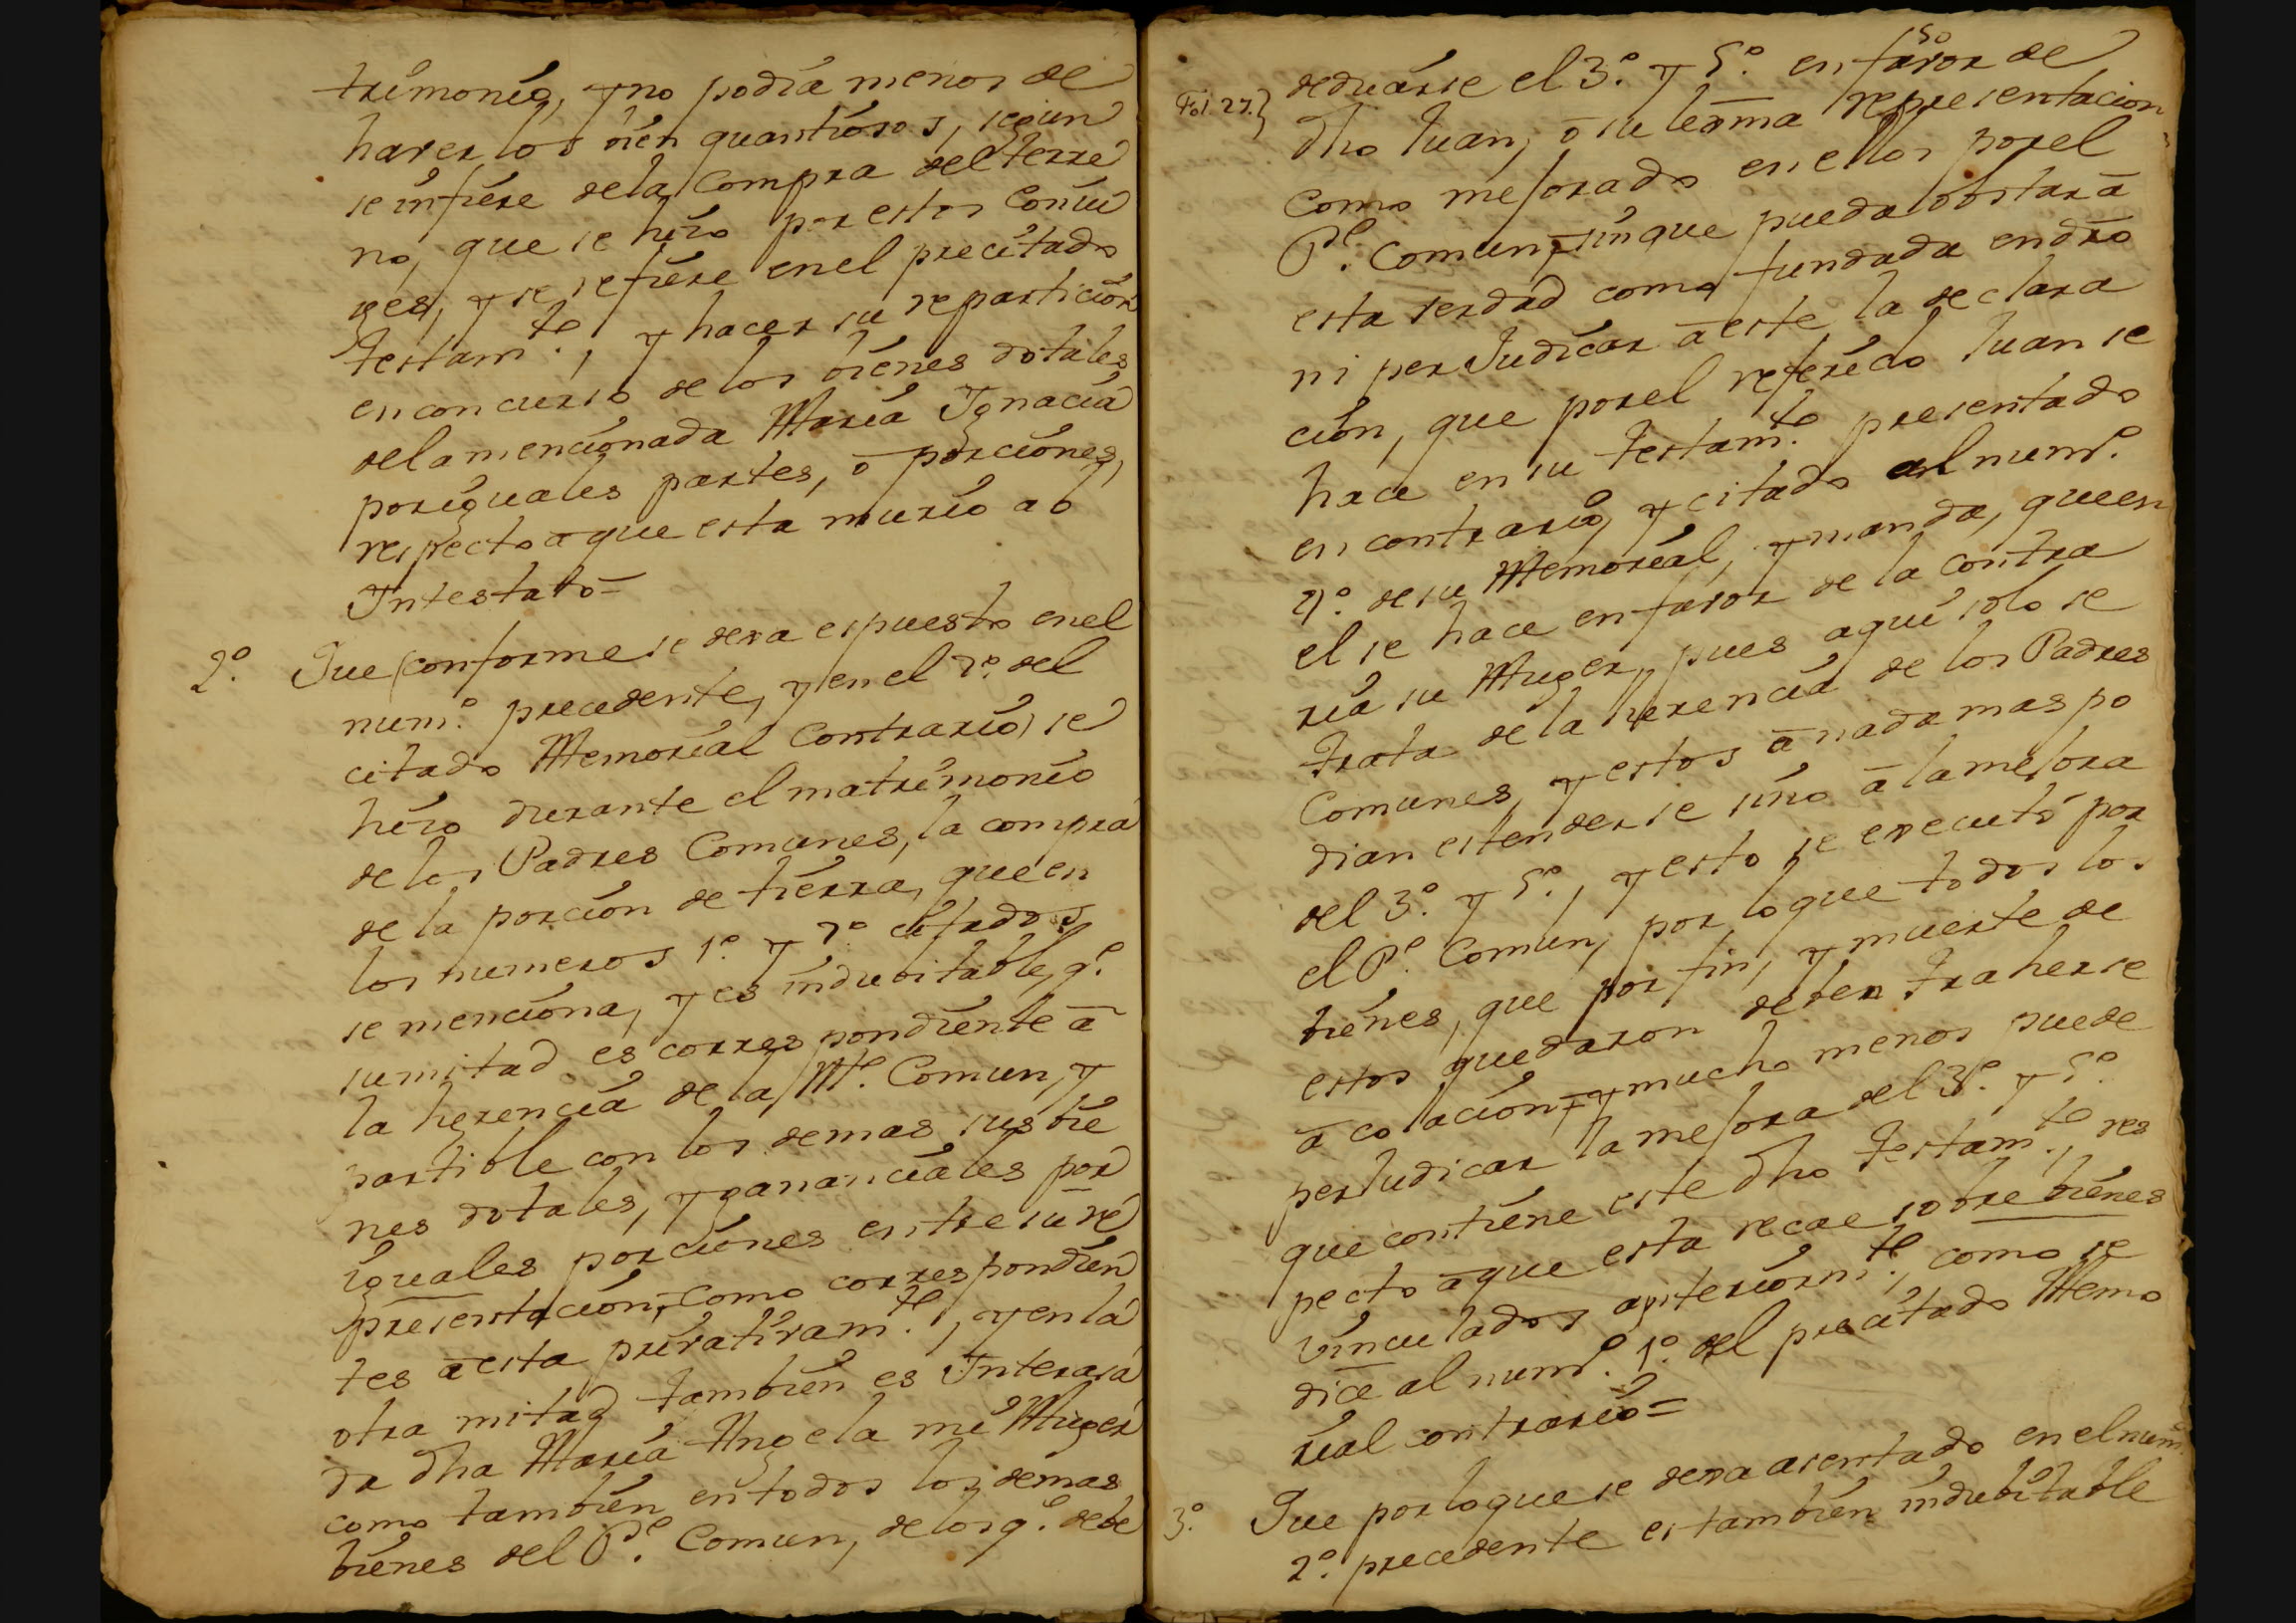 trimonio, y no podia menos de
haver los bien quantiosos, segun
se infiere de la Compra del terre
no, que se hizo por estos Coniu
ges, y se refiere en el precitado
testam.to, y hacer su reparticion
en concurso de los bienes dotales
de la mencionada Maria Ignacia
por iguales partes, ō porciones,
respecto a que esta murio ab
Intestato=
2.º Que conforme se dexa espuesto en el
num.º precedente, y en el 7.º del
citado Memorial Contrario, se
hizo durante el matrimonio
de los Padres Comunes, la compra
de la porcion de tierra, que en
los numeros 1.º y 7.º citados,
se menciona, y es indubitable, q.e
su mitad es correspondiente ā
la herencia de la M.e Comun, y
partible con los demas sus bie
nes dotales, y gananciales por
iguales porciones entre su re
presentacion, como correspondien
tes ā esta pribatibam.te, y en la
otra mitad tambien es Interesa
da dha Maria Angela mi Muger
como tambien en todos los demas
bienes del P.e Comun, de los q.e debe
50
deducirse el 3.º y 5.º en favor de
Fol. 27.}
dho Juan, ō su lexma representacion
como mejorado en ellos por el
P.e Comun, sin que pueda obstar ā
esta verdad como fundada en dro
ni perJudicar ā este la declara
cion, que por el referido Juan se
hace en su testam.to presentado
en contrario, y citado al num.º
7.º de su Memorial, y manda, que en
el se hace en favor de la contra
ria su Muger, pues aqui solo se
trata de la herencia de los Padres
Comunes, y estos ā nada mas po
dian estenderse sino ā la mejora
del 3.º y 5.º, y esto se executó por
el P.e Comun, por lo que todos los
bienes, que por fin, y muerte de
estos quedaron deben traherse
ā colacion, y mucho menos puede
perJudicar la mejora del 3.º y 5.º
que contiene este dho testam.to, res
pecto ā que esta recae sobre bienes
vinculados anteriorm.te, como se
dice al num.º 1.º del precitado Memo
rial contrario=
3.º Que por lo que se dexa asentado en el num.º
2.º precedente es tambien indubitable